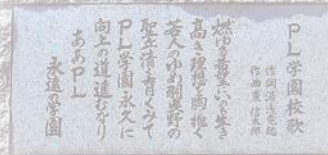 PL学園校歌
作詞 湯浅竜起
作曲 東信太郎
燃ゆる希望いのち生き
高き理想を胸抱く
若人のゆめ羽曳野の
聖丘清く育くみて
PL学園永久に
向上の道進むなり
ああPL
永遠の学園